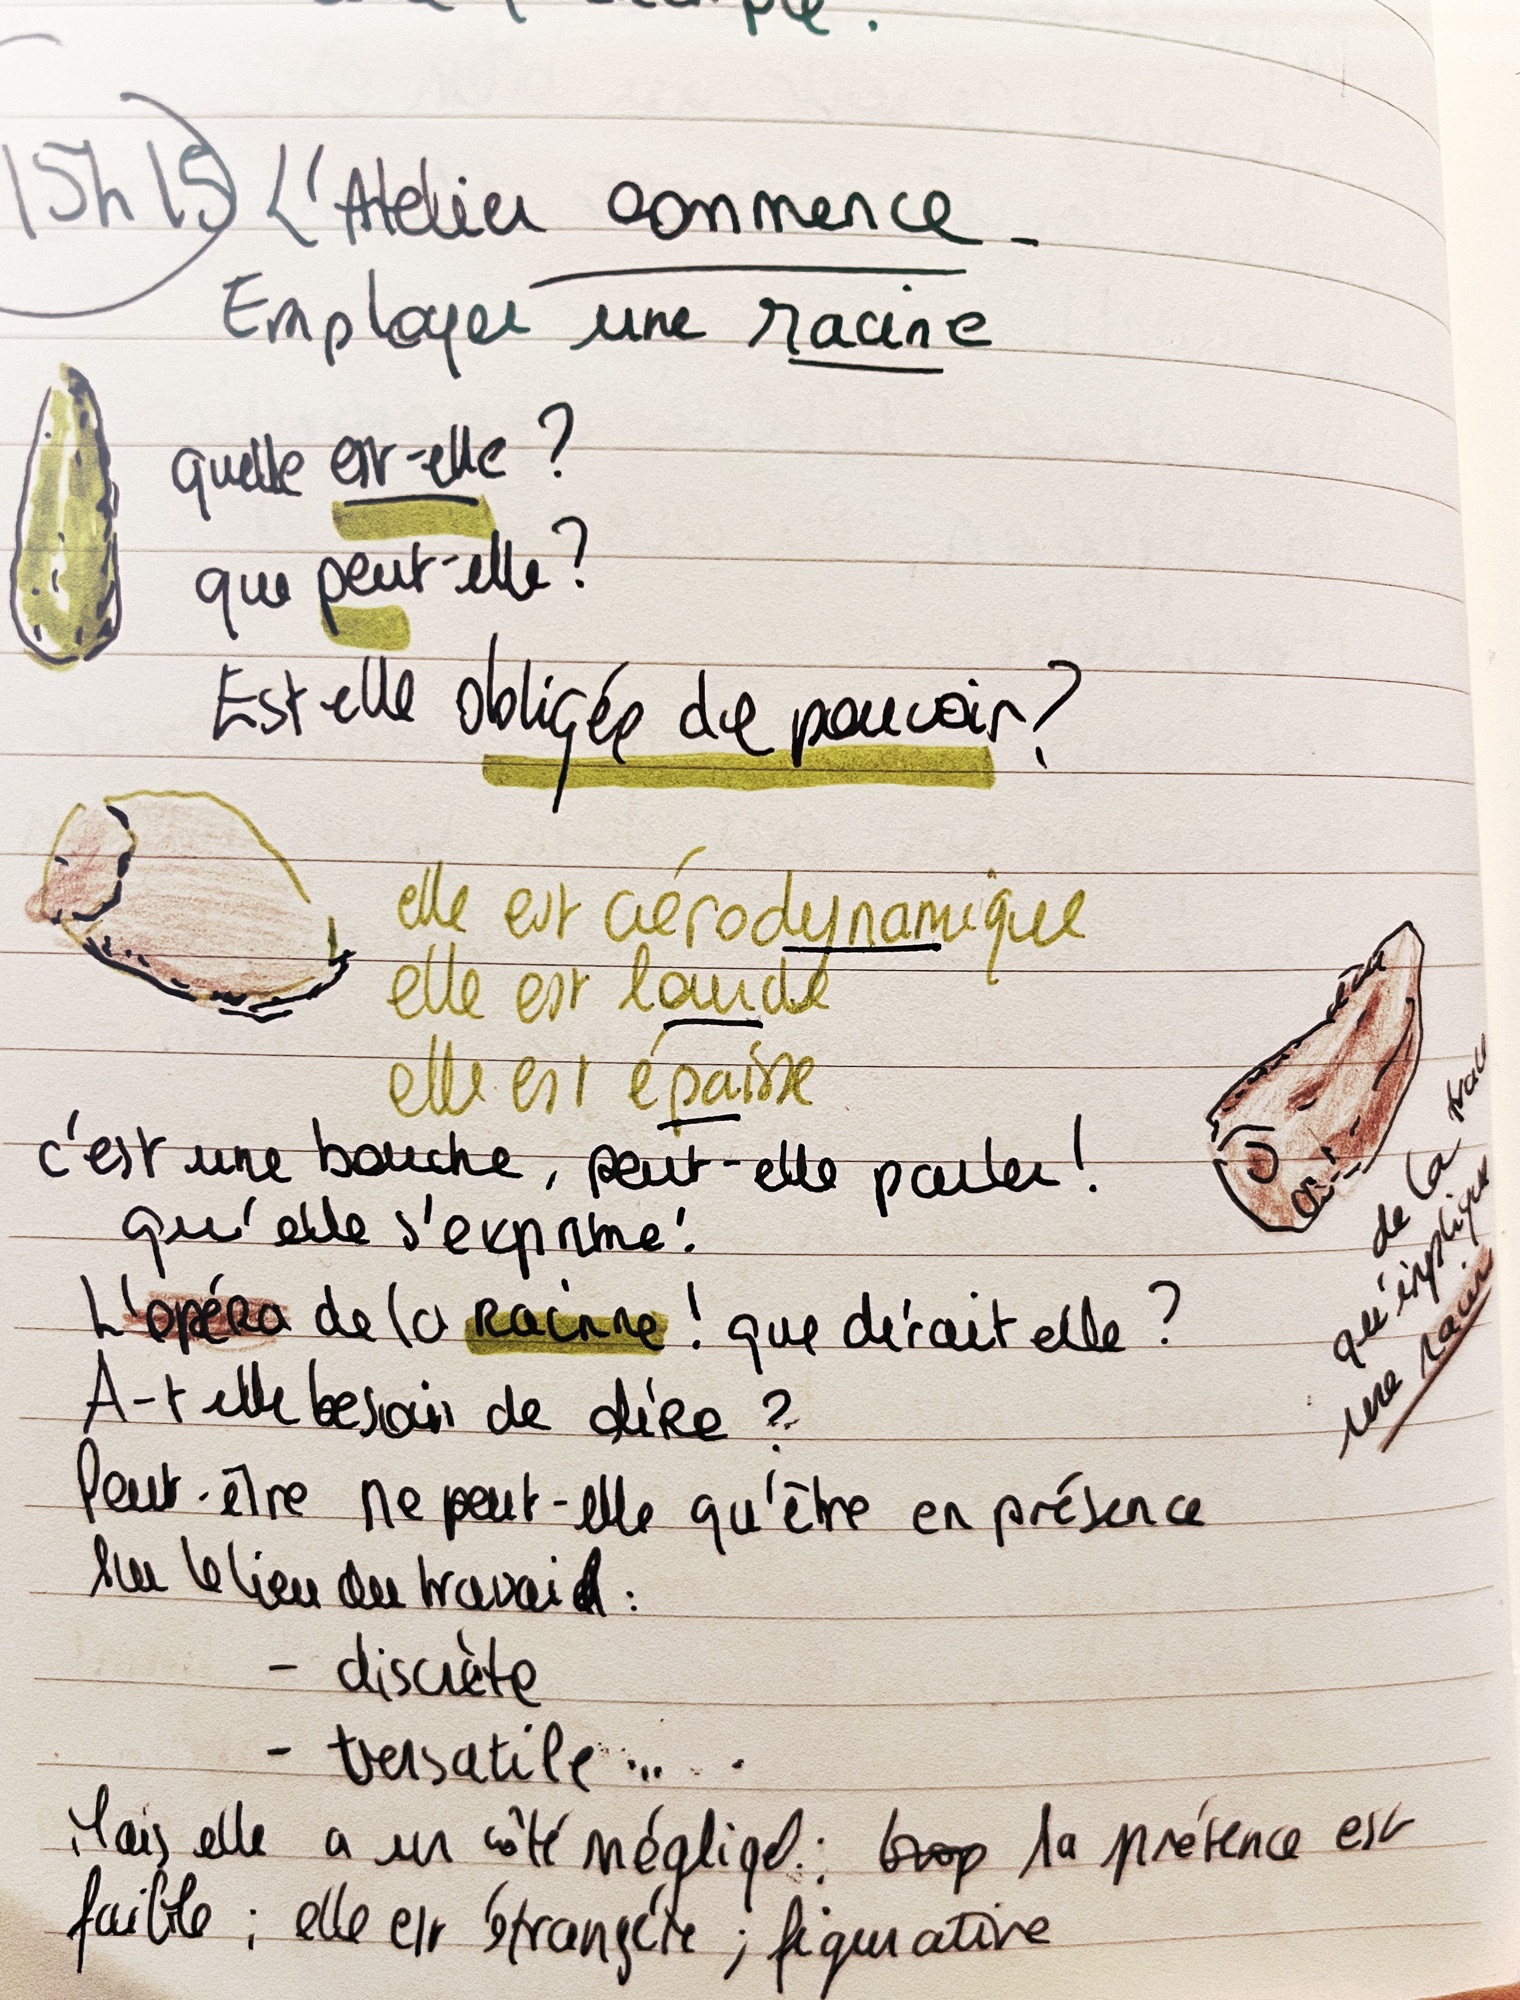 15h15 L'Atelier commence -
Employer une racine
quelle est-elle ?
que peut-elle ?
Est elle obligée de pouvoir ?
elle est aérodynamique
elle est lourde
elle est épaisse
c'est une bouche, peut-elle parler !
qu'elle s'exprime !
L'opéra de la Racine ! que dirait elle ?
A-t elle besoin de dire ?
Peut-être ne peut-elle qu'être en présence
sur le lieu du travail :
- discrète
- versatile ...
Mais elle a un côté négligé : trop sa présence est
faible ; elle est étrangère ; figurative
de la trace
qu'implique
une racine